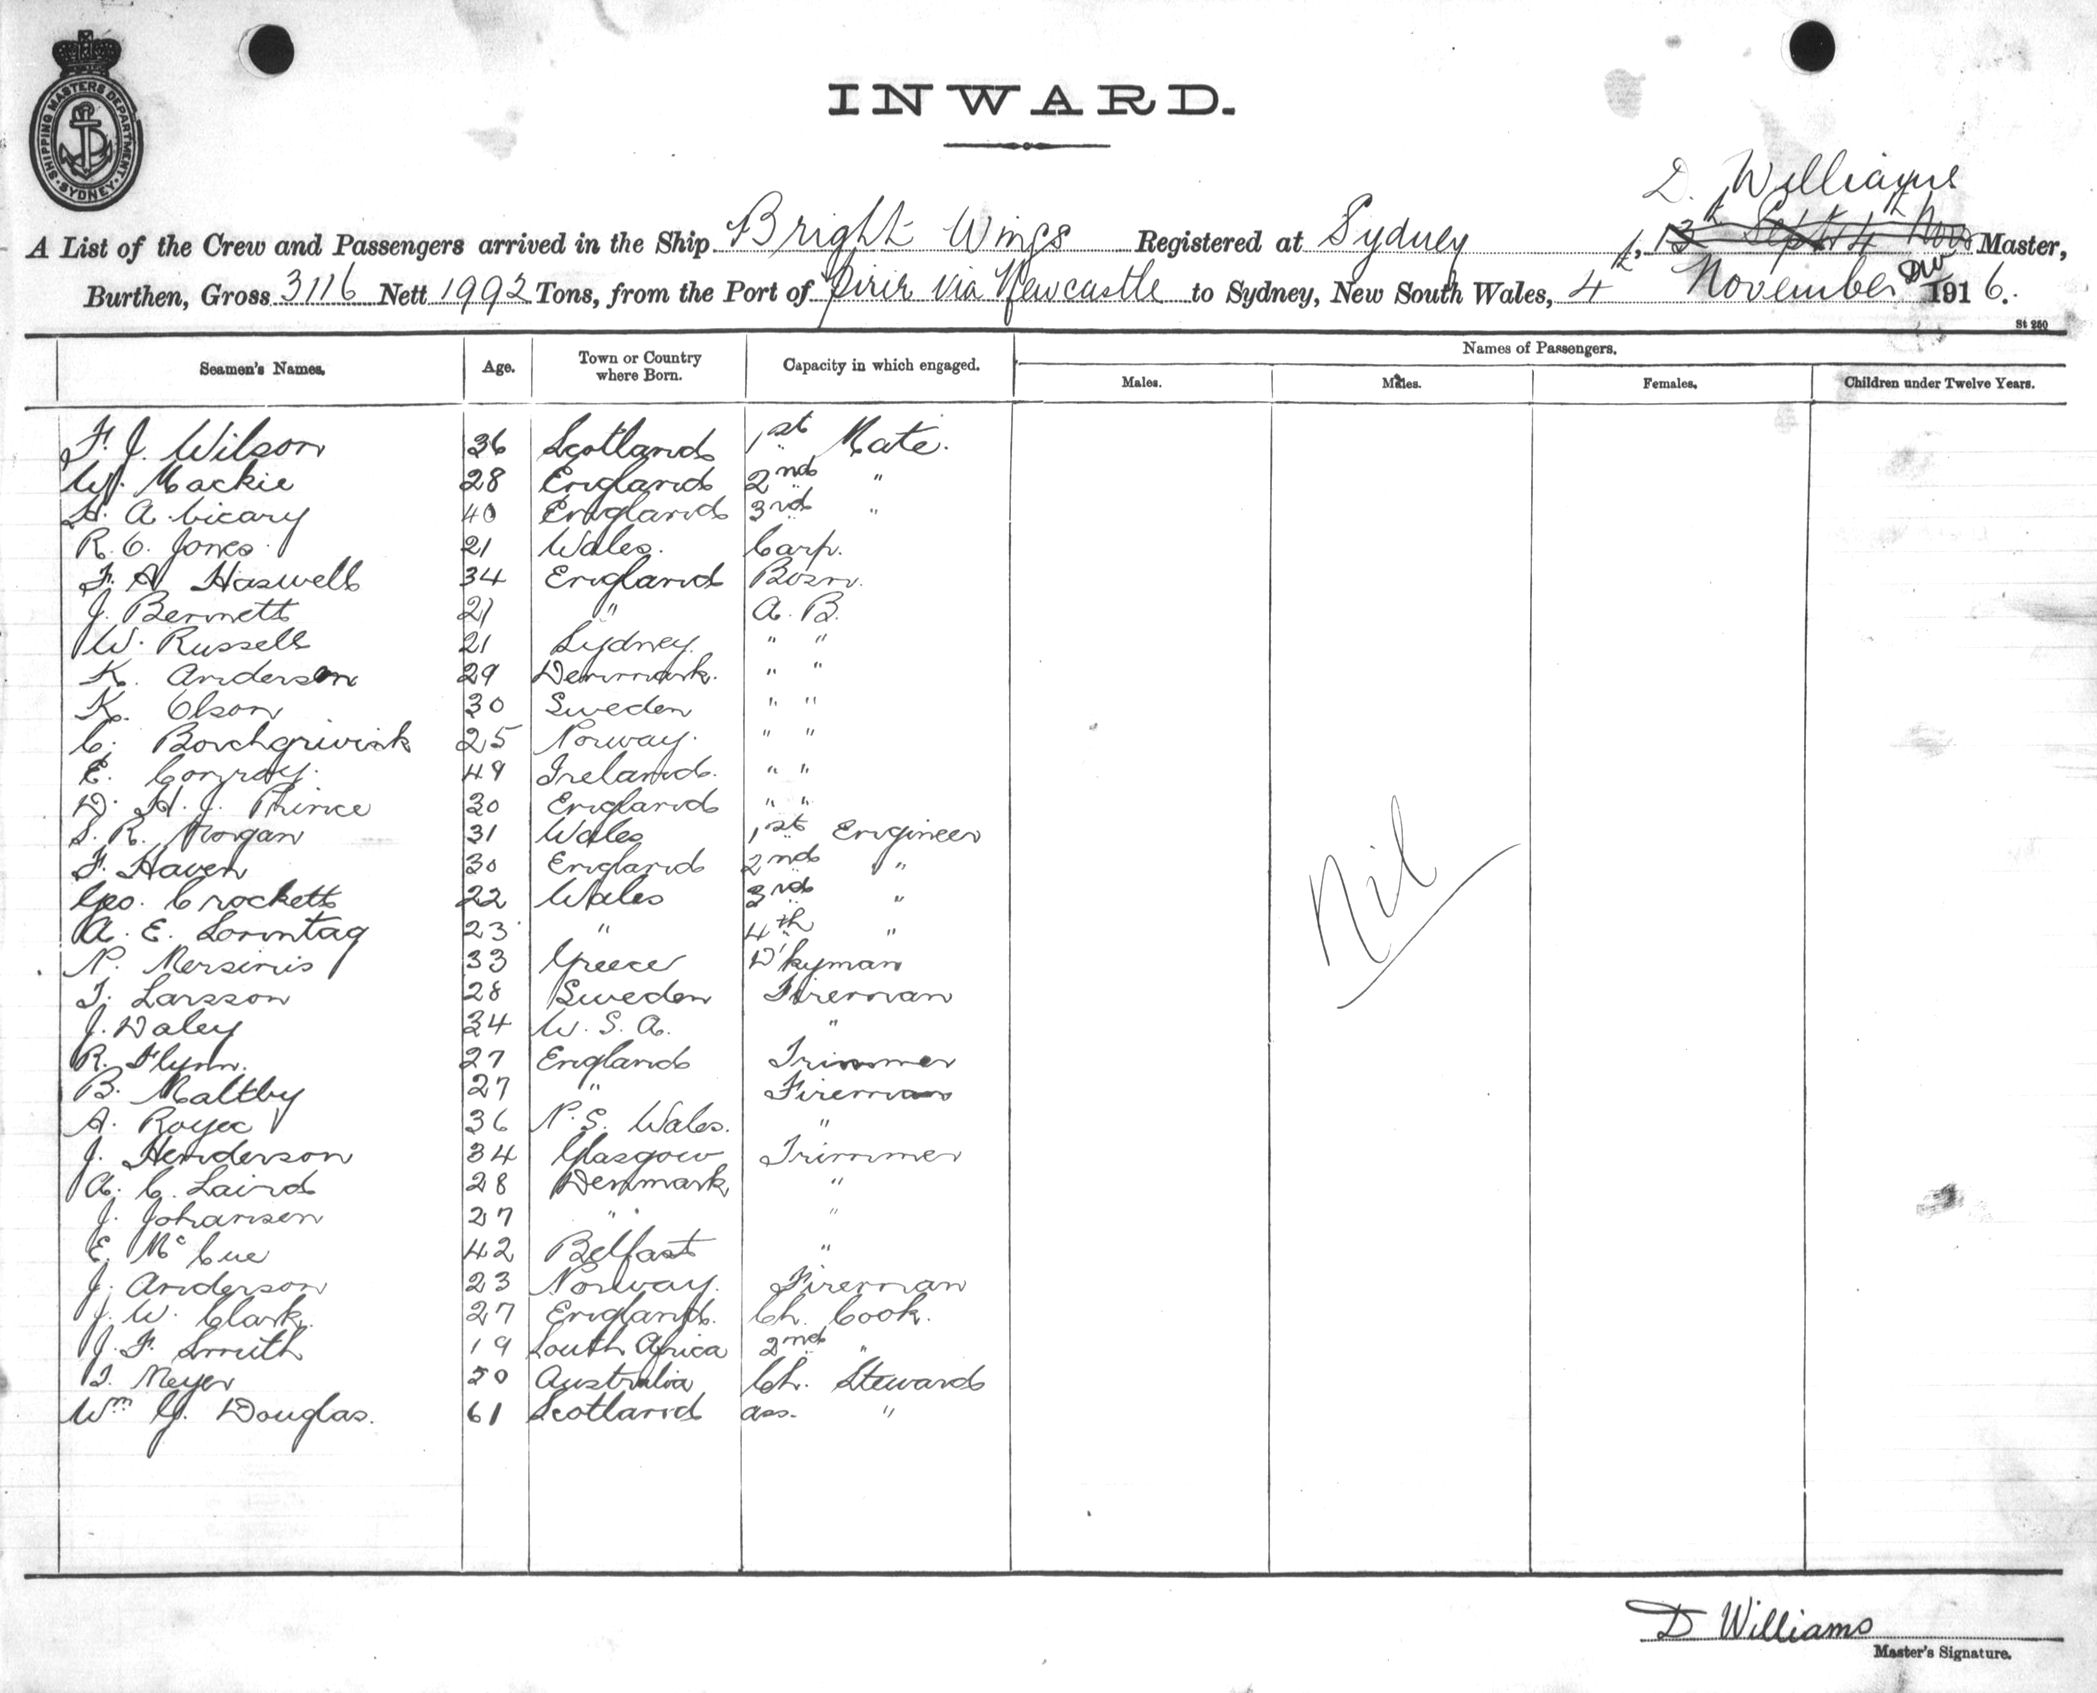 SHIPPING MASTERS DEPARTMENT
SYDNEY
INWARD.
D. Williams
A List of the Crew and Passengers arrived in the Ship Bright Wings Registered at Sydney, 13th Sept 4th Nov Master,
Burthen, Gross 3116 Nett 1992 Tons, from the Port of Pirie via Newcastle to Sydney, New South Wales, 4th November DW 1916.
St 250
Seamen's Names. Age. Town or Country where Born. Capacity in which engaged. Names of Passengers.
Males. Males. Females. Children under Twelve Years.
F. J. Wilson 36 Scotland 1st Mate.
W. Mackie 28 England 2nd "
H. A. Vicary 40 England 3rd "
R. O. Jones 21 Wales. Carp.
F. A. Haswell 34 England Bosn.
J. Bennett 21 " A. B.
W. Russell 21 Sydney. " "
K. Anderson 29 Denmark. " "
K. Olson 30 Sweden " "
C. Borchgrivink 25 Norway. " "
E. Conroy. 49 Ireland. " "
D. H. J. Prince 30 England " "
S. R. Morgan 31 Wales 1st Engineer
F. Haven 30 England 2nd "
Geo. Crockett 22 Wales 3rd "
A. E. Sonntag 23 " 4th "
N. Mersinis 33 Greece D'kyman
T. Larsson 28 Sweden Fireman
J. Daley 34 U. S. A. "
R. Flynn. 27 England Trimmer
B. Maltby 27 " Fireman
A. 36 N. S. Wales. "
J. Henderson 34 Glasgow Trimmer
A. C. Laird 28 Denmark "
J. Johansen 27 " "
E. McCue 42 Belfast "
J. Anderson 23 Norway. Fireman
J. W. Clark. 27 England. Ch. Cook.
J. F. Smith 19 South Africa 2nd "
Meyer 50 Australia Ch. Steward
Wm G. Douglas. 61 Scotland ass. "
Nil
D Williams
Master's Signature.